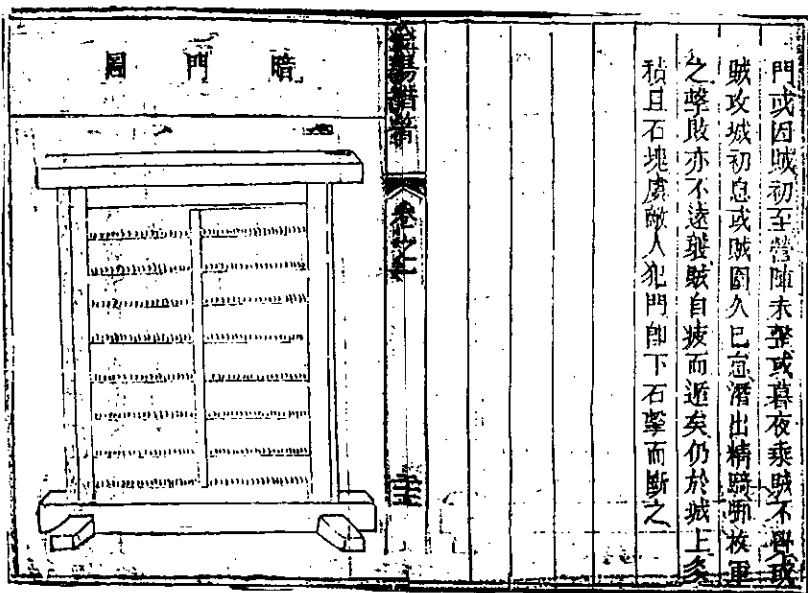 門或因賊初至營陣未整或暮夜乘賊不覺或
賊攻城初息或賊圍久已怠潛出精騎啣枚軍
之擊敗亦不遠襲賊自疲而遁矣仍於城上多
積且石塊虞敵人犯門卽下石擊而斷之
卷之七
暗門圖